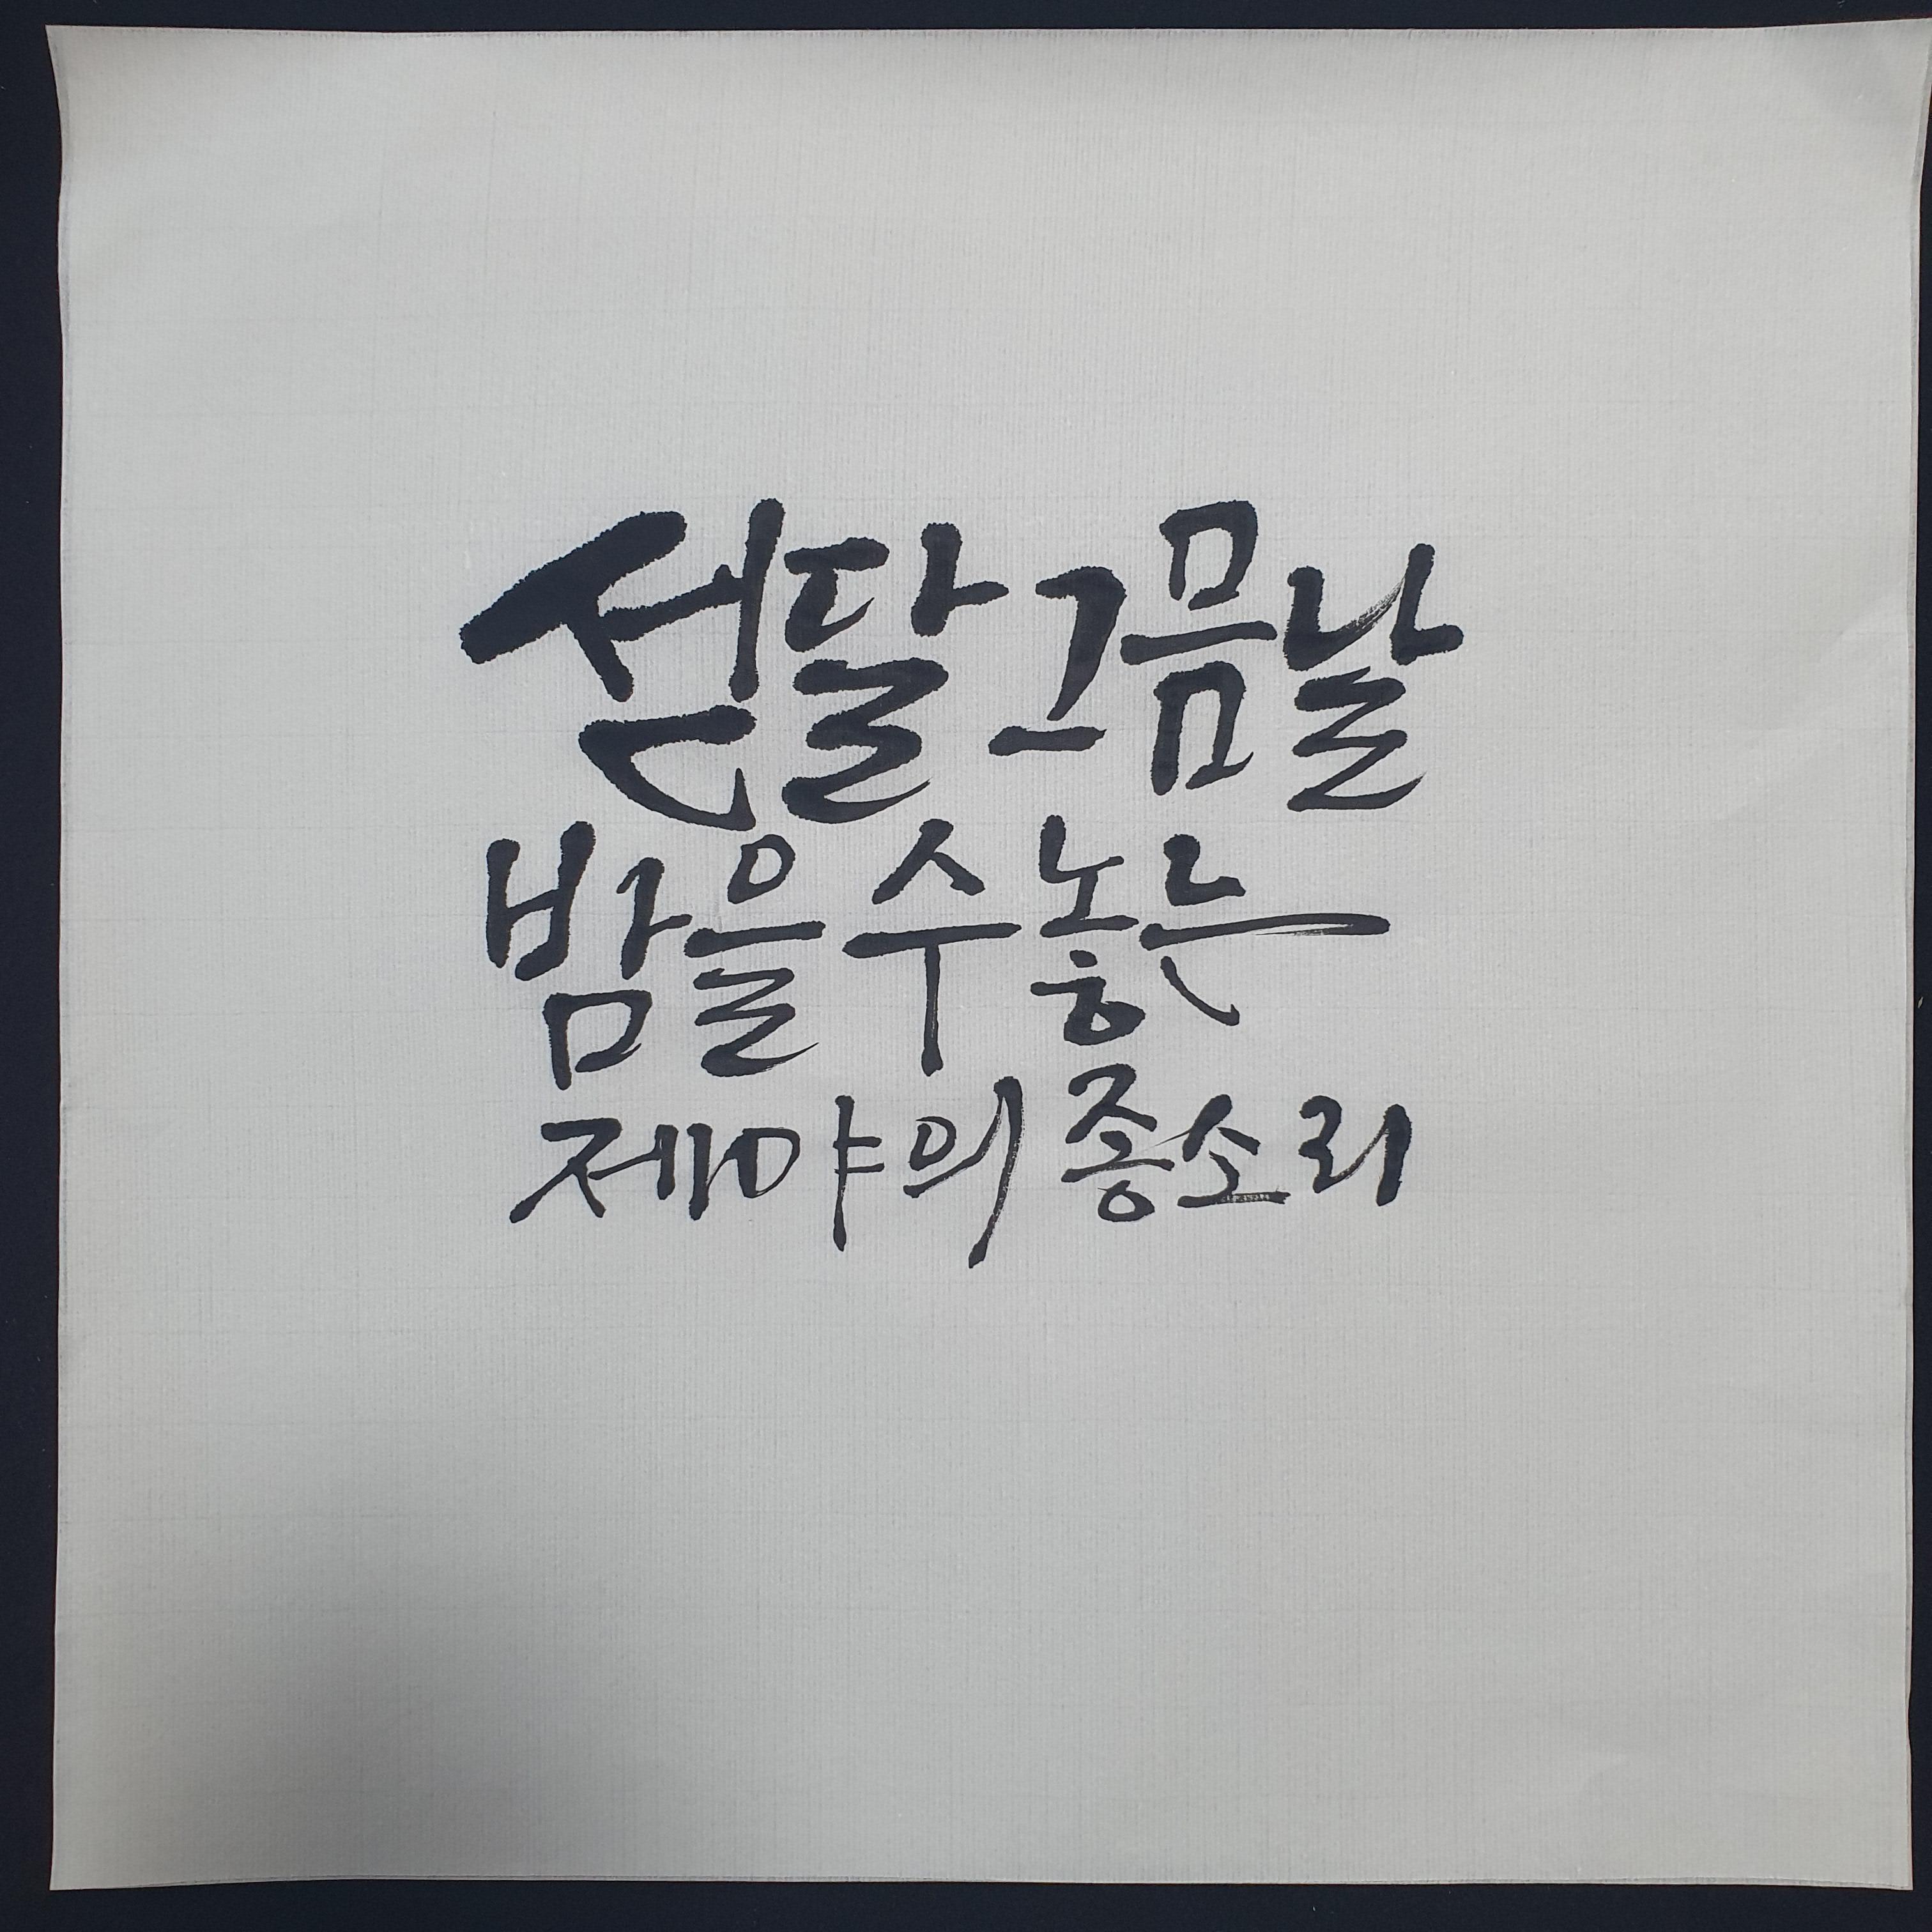 섣달 그믐날
밤을 수놓는
제야의 종소리